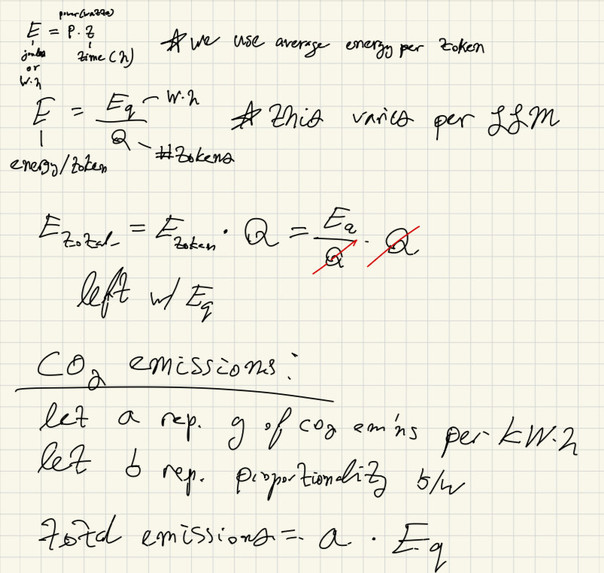 power(watts)
E = P · t
joules or W·h
time (h)
* we use average energy per token
E = Eq / Q
W·h
#tokens
* this varies per LLM
energy/token
E total = E token · Q = Eq / Q · Q
left w/ Eq
CO2 emissions:
let a rep. g of co2 em'ns per kW·h
let b rep. proportionality b/w
total emissions = a · Eq